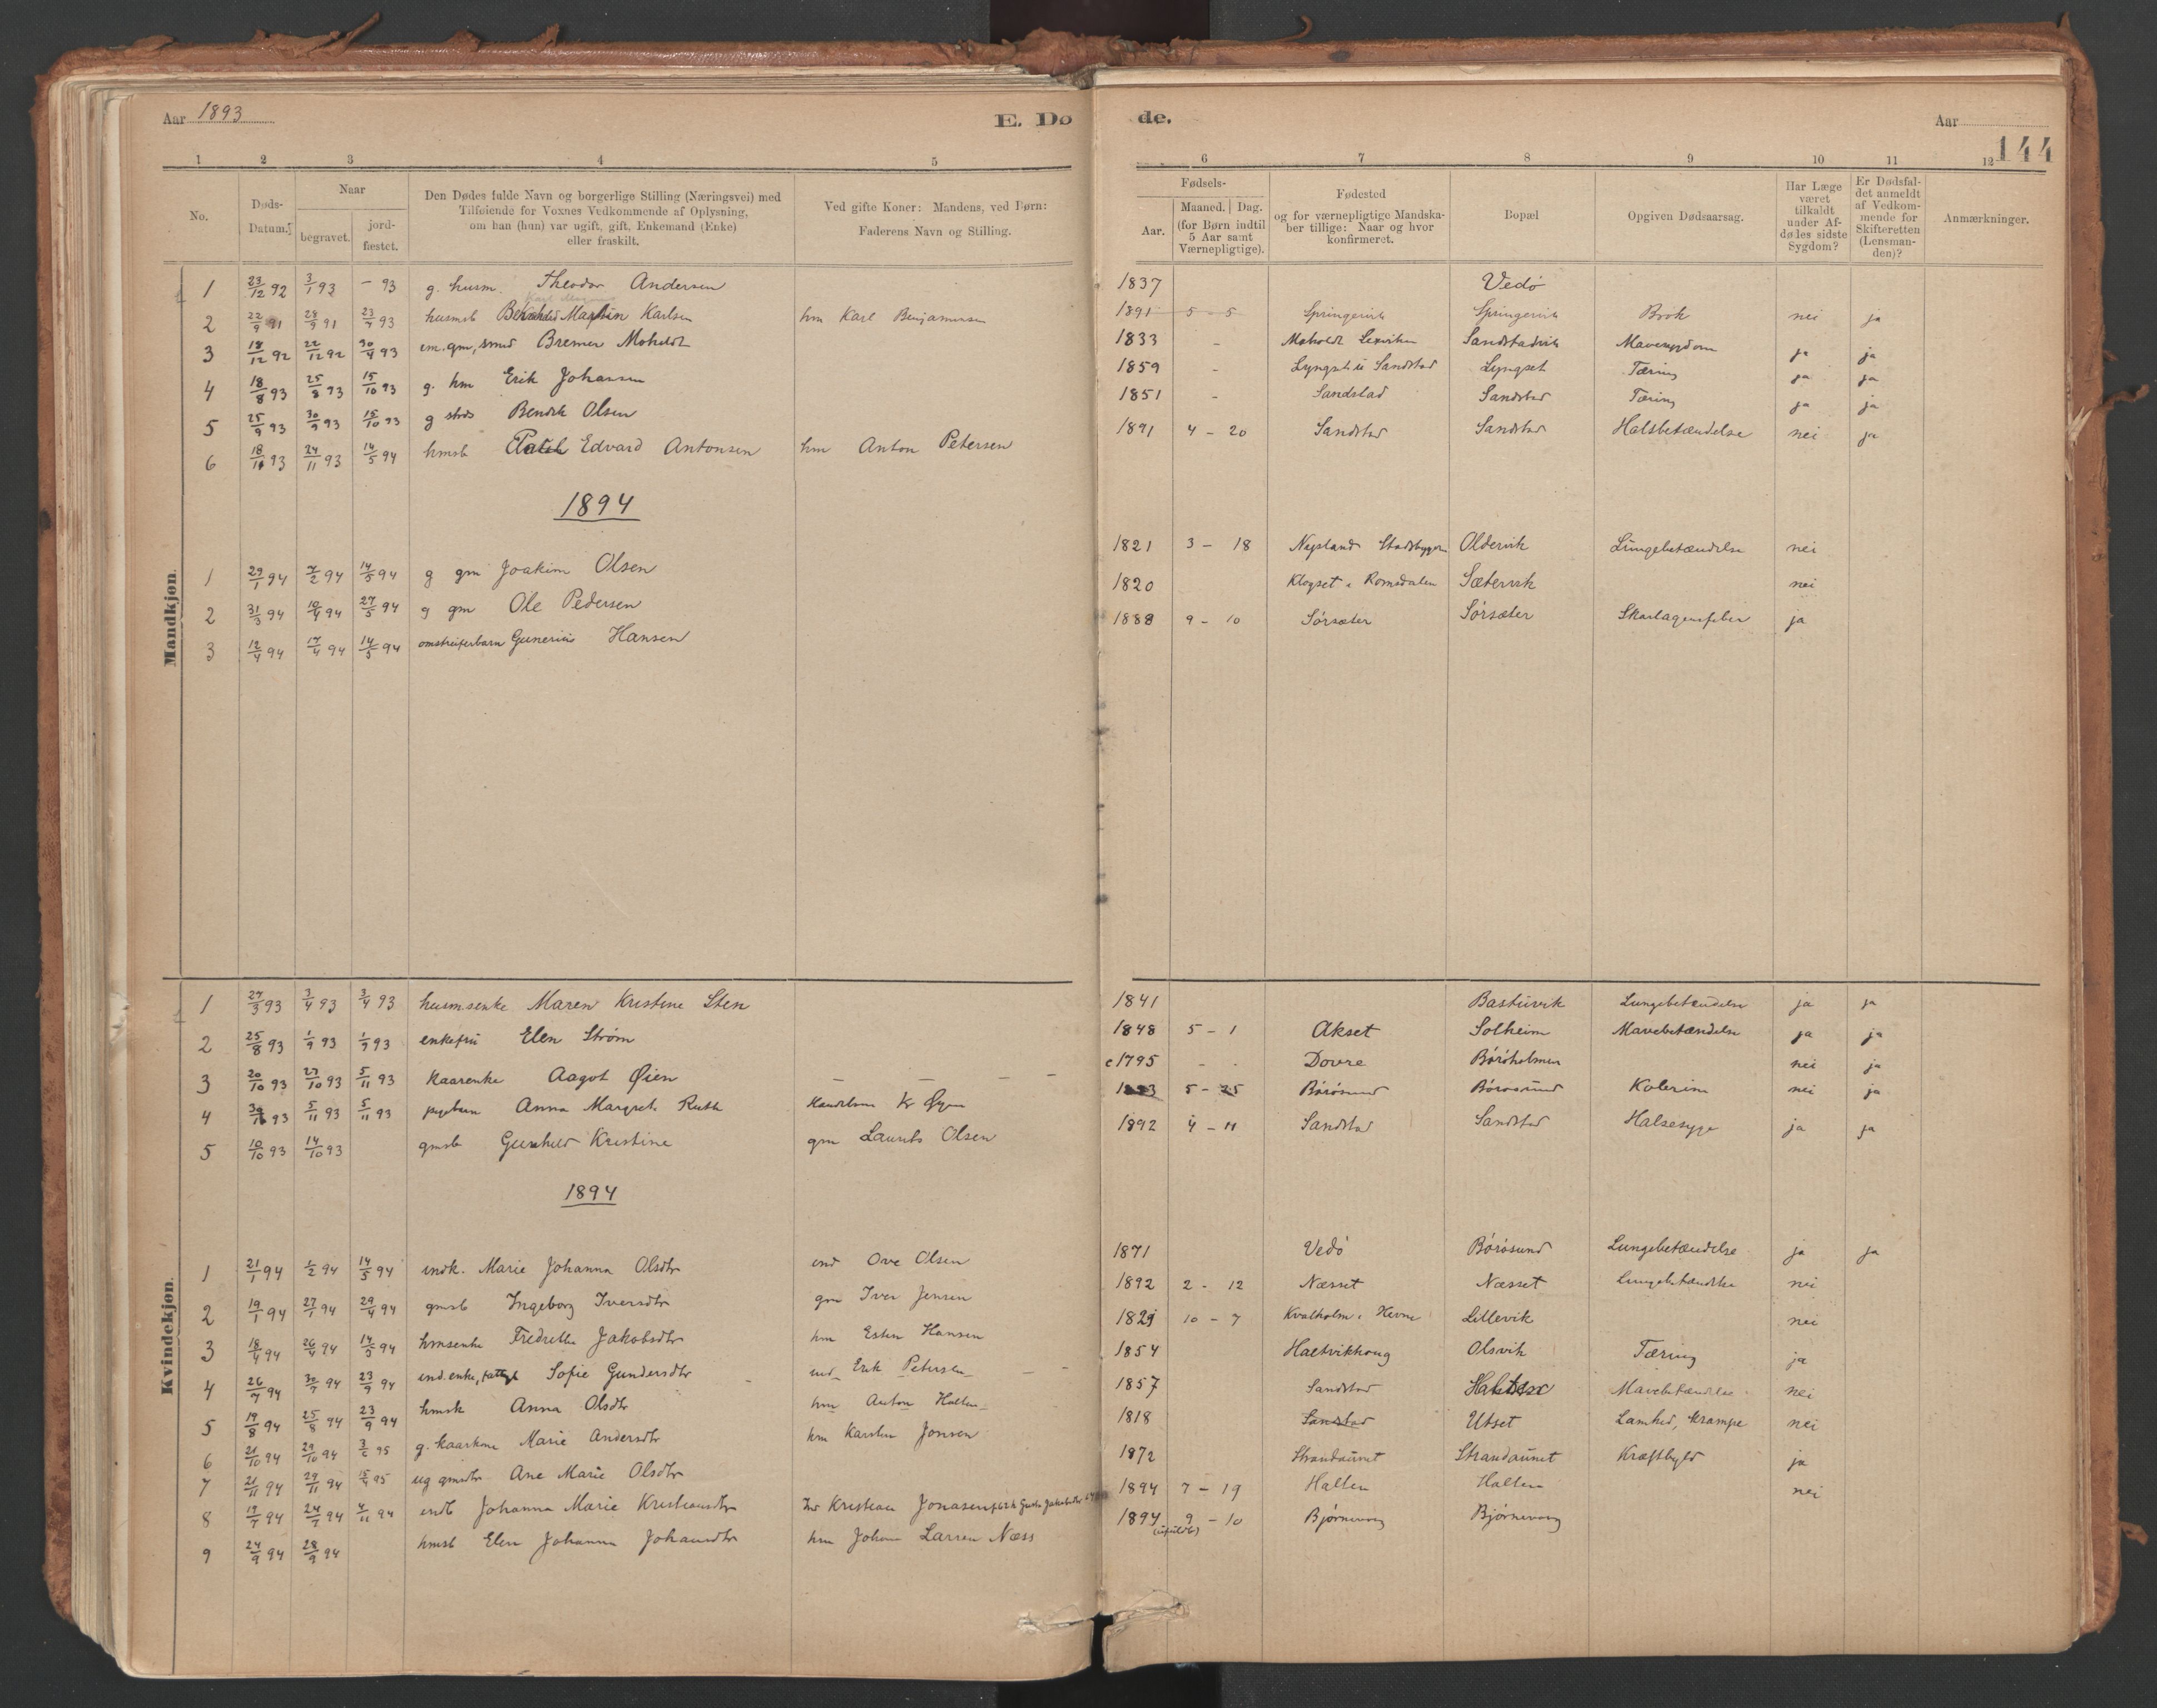 Aar 1893
E. Dø
de.
Aar
144
1 2 3 4 5
6 7 8 9 10 11 12
No.
Døds-
Datum.
Naar
begravet.
jord-
fæstet.
Den Dødes fulde Navn og borgerlige Stilling (Næringsvei) med
Tilføiende for Voxnes Vedkommende af Oplysning,
om han (hun) var ugift, gift, Enkemand (Enke)
eller fraskilt.
Ved gifte Koner: Mandens, ved Børn:
Faderens Navn og Stilling.
Fødsels-
Aar.
Maaned. Dag.
(for Børn indtil
5 Aar samt
Værnepligtige).
Fødested
og for værnepligtige Mandska-
ber tillige: Naar og hvor
konfirmeret.
Bopæl
Opgiven Dødsaarsag.
Har Læge
været
tilkaldt
under Af-
dødes sidste
Sygdom?
Er Dødsfal-
det anmeldt
af Vedkom-
mende for
Skifteretten
(Lensman-
den)?
Anmærkninger.
Mandkjøn.
1 23/12 92 3/1 93 – 93 g. husm. Theodor Andersen 1837 Vedö
2 22/9 91 28/9 91 23/7 93 husmsb Martin Karlsen hm Karl Benjaminsen 1891 5 - 5 Springervik Springervik Brok nei ja
3 18/12 92 22/12 92 30/4 93 em. gm, smed Bremer Moholdt 1833 - Moholdt Lexviken Sandstadvik Mavesygdom ja ja
4 18/8 93 25/8 93 15/10 93 g. hm Erik Johansen 1859 - Lyngset i Sandstad Lyngset Tæring ja ja
5 25/9 93 30/9 93 15/10 93 g Bendik Olsen 1851 - Sandstad Sandstad Tæring ja ja
6 18/11 93 24/11 93 14/5 94 hmsb Edvard Antonsen hm Anton Petersen 1891 4 - 20 Sandstad Sandstad Halsbetændelse nei ja
1894
1 29/1 94 7/2 94 14/5 94 g gm Joakim Olsen 1821 3 - 18 Nysland Stadsbygden Oldervik Lungebetændelse nei
2 31/3 94 10/4 94 27/5 94 g gm Ole Pedersen 1820 Klogset i Romsdalen Sætervik nei
3 12/4 94 17/4 94 14/5 94 omstreiferbarn Gunerius Hansen 1888 9 - 10 Sörsæter Sörsæter Skarlagensfeber ja
Kvindekjøn.
1 27/3 93 3/4 93 3/4 93 husmsenke Maren Kristine Sten 1841 Bastuvik Lungebetændelse ja ja
2 25/8 93 1/9 93 1/9 93 enkefru Elen Strøm 1848 5 - 1 Akset Solheim Mavebetændelse ja ja
3 20/10 93 27/10 93 5/11 93 Kaarenke Aagot Øien – – – – c1795 - - Dovre Böröholmen nei ja
4 93 5/11 93 5/11 93 pigebarn Anna Margrete Ruth Handelsm Kr Øyen 5 - 25 Börösund Börösund Kolerine nei ja
5 10/10 93 14/10 93 gmsb Gunhild Kristine gm Laurits Olsen 1892 4 - 11 Sandstad Sandstad Halsesyge ja ja
1894
1 21/1 94 1/2 94 14/5 94 indk. Marie Johanna Olsdtr ind Ove Olsen 1871 Vedö Börösund Lungebetændelse ja ja
2 19/1 94 27/1 94 29/4 94 gmsb Ingeborg Iversdtr gm Iver Jensen 1892 2 - 12 Næsset Næsset Lungebetændelse nei
3 18/4 94 26/4 94 14/5 94 hmsenke Fredrikke Jakobsdtr hm Esten Hansen 1829 10 - 7 Kvalholm i Hevne Lillevik nei
4 26/7 94 30/7 94 23/9 94 ind. enke, fattigl Sofie Gundersdtr ind Erik Petersen 1854 Haltvikhaug Olsvik Tæring ja
5 19/8 94 25/8 94 23/9 94 hmsk Anna Olsdtr hm Anton Halten 1857 Sandstad Halten Mavebetændelse nei
6 21/10 94 29/10 94 95 g. kaarkone Marie Andersdtr hm Karsten Jonsen 1818 Sandstad Utset Lamhed, krampe nei
7 21/11 94 29/11 94 95 ug gmsdtr Ane Marie Olsdtr 1872 Strandaunet Strandaunet Kræftbyld ja
8 19/7 94 24/7 94 4/11 94 indb Johanna Marie Kristiansdtr Ind Kristian Jonasen 1894 7 - 19 Halten Halten nei
9 24/9 94 28/9 94 hmsb Elen Johanna Johansdtr hm Johan Larsen Næss 1894 9 - 10 Bjørnevaag Bjørnevaag